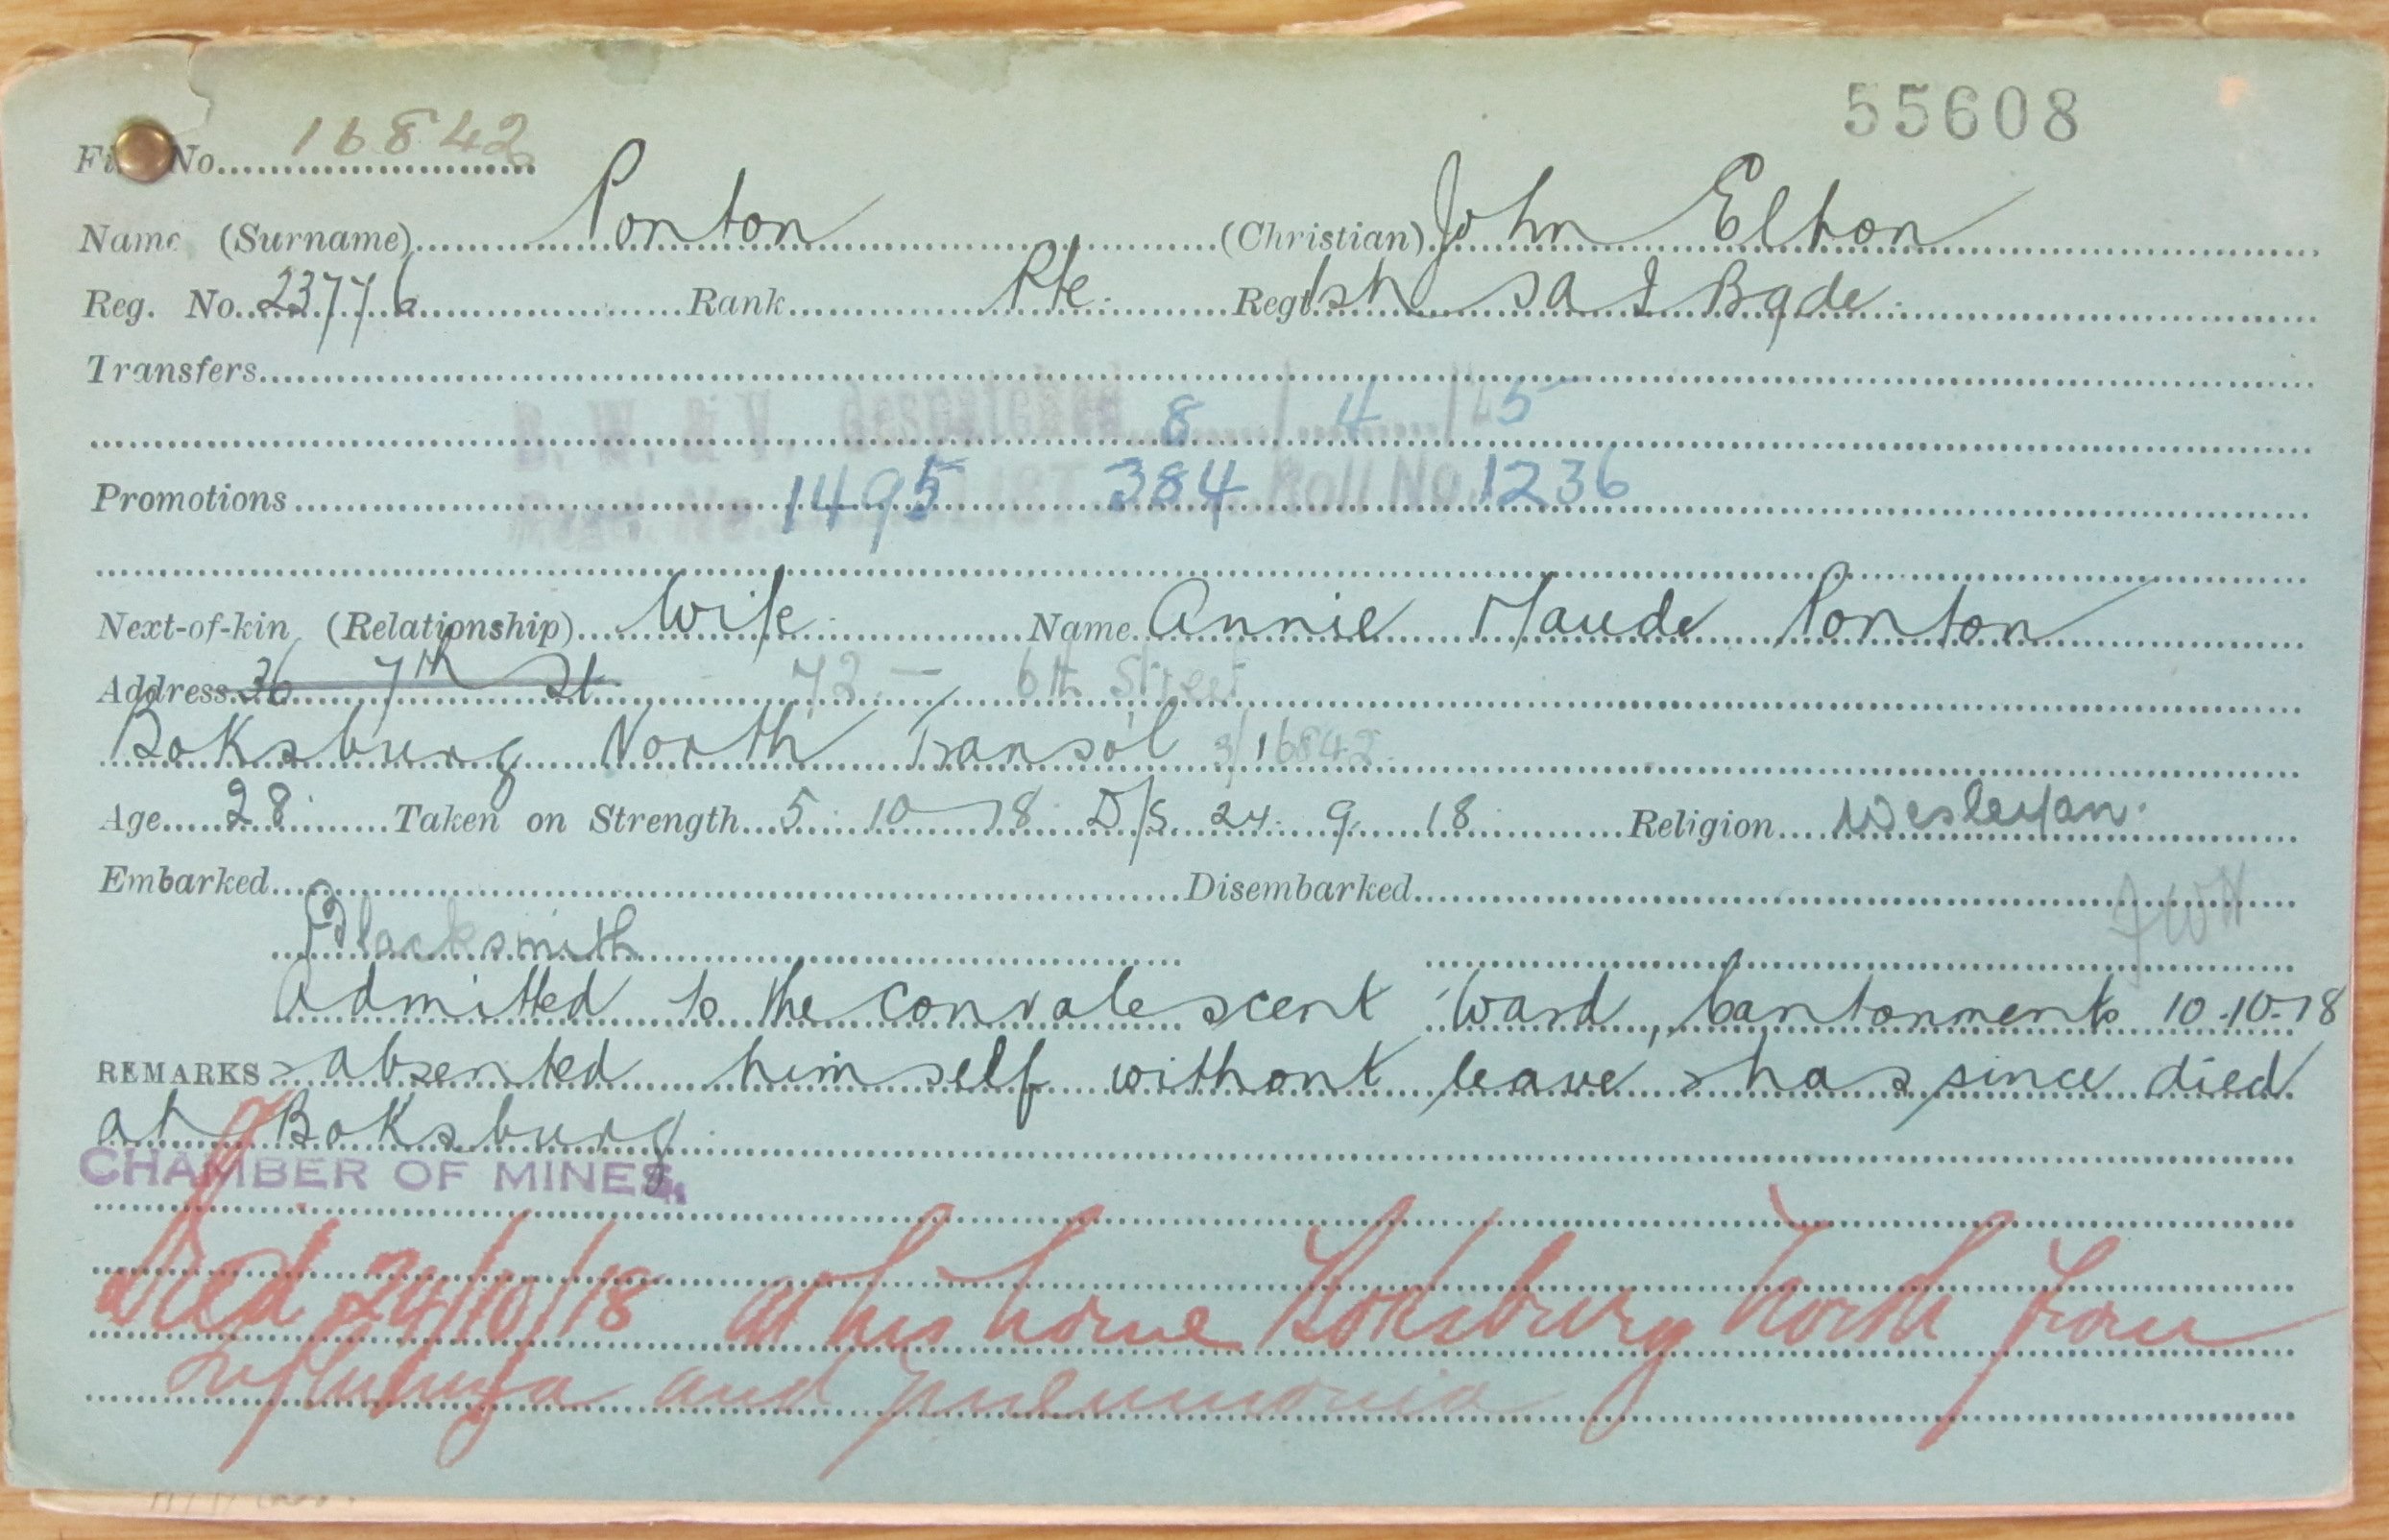 55608
File No. 16842
Name (Surname) Ponton (Christian) John Elton
Reg. No. 23776 Rank Pte. Regt. 1st S A I Bgde.
Transfers
B. W. & V. despatched 8 / 4 / 25
Promotions
1495 LIST 384 Roll No. 1236
Next-of-kin (Relationship) Wife. Name Annie Maude Ponton
Address 36 7th St. 72 - 6th Street
Boksburg North Transv'l 3/16842
Age 28. Taken on Strength 5 10 18 D/S. 24. 9. 18 Religion Wesleyan.
Embarked Disembarked
Blacksmith
Admitted to the Convalescent Ward, Cantonments 10-10-18
REMARKS & absented himself without leave & has since died
at Boksburg.
CHAMBER OF MINES.
Died 24/10/18 at his home Boksburg North from
Influenza and pneumonia